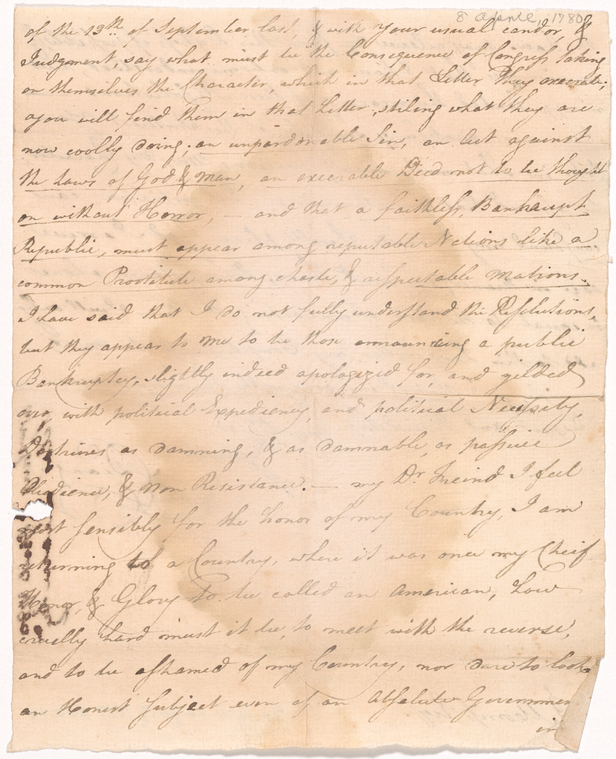 8 April 1780
of the 13th of September last & with your usual candor, &
Judgment, say what must be the Consequence of Congress taking
on themselves the Character, which in that Letter they execrate;
you will find them in that Letter, stiling what they are
now coolly doing; an unpardonable Sin, an act against
the Laws of God & Man, an execrable Deed not to be thought
on without Horror, — and that a faithless Bankrupt
Republic, must appear among reputable Nations like a
common Prostitute among chaste, & respectable Matrons.
I have said that I do not fully understand the Resolutions,
but they appear to me to be those announcing a public
Bankruptcy, slightly indeed apologized for, and gilded
over, with political Expediency, and political Necessity,
Doctrines as damning, & as damnable, as passive
Obedience, & Non Resistance. — my Dr. Freind I feel
most sensibly for the honor of my Country, I am
returning to a Country, where it was once my Cheif
Honor, & Glory to be called an American, how
cruelly hard must it be, to meet with the reverse,
and to be ashamed of my Country, nor dare to look
an Honest Subject even of an Absolute Governmen
in